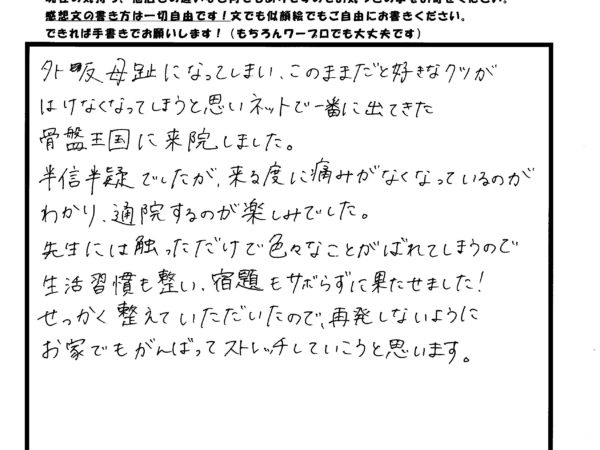 感想文の書き方は一切自由です！文でも似顔絵でもご自由にお書きください。
できれば手書きでお願いします！（もちろんワープロでも大丈夫です）
外反母趾になってしまい、このままだと好きなクツが
はけなくなってしまうと思いネットで一番に出てきた
骨盤王国に来院しました。
半信半疑でしたが、来る度に痛みがなくなっているのが
わかり、通院するのが楽しみでした。
先生には触っただけで色々なことがばれてしまうので
生活習慣も整い、宿題もサボらずに果たせました！
せっかく整えていただいたので、再発しないように
お家でもがんばってストレッチしていこうと思います。